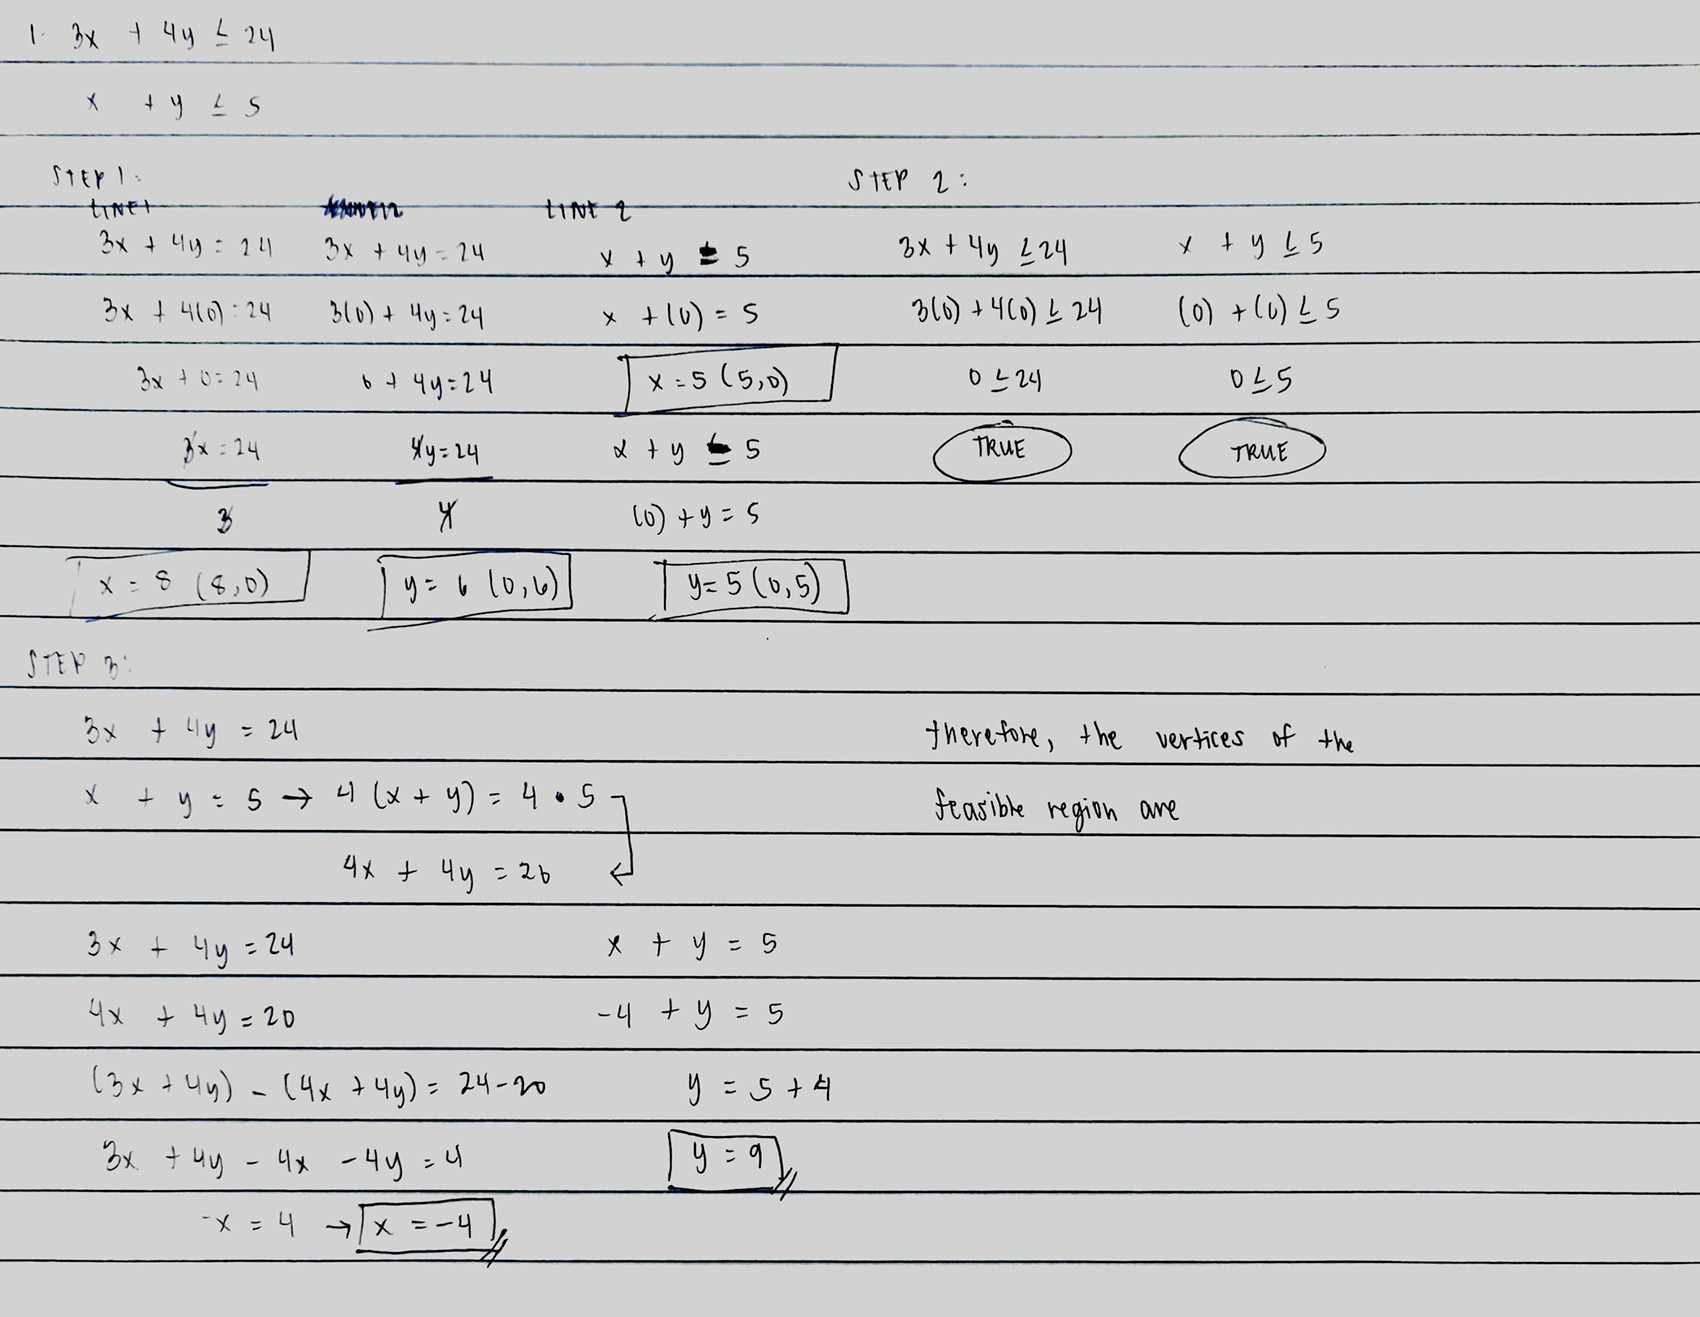 1. 3x + 4y ≤ 24
x + y ≤ 5
STEP 1:
LINE 1
3x + 4y = 24
3x + 4(0) = 24
3x + 0 = 24
3x = 24
3
x = 8 (8,0)
3x + 4y = 24
3(0) + 4y = 24
0 + 4y = 24
4y = 24
4
y = 6 (0,6)
LINE 2
x + y = 5
x + (0) = 5
x = 5 (5,0)
x + y = 5
(0) + y = 5
y = 5 (0,5)
STEP 2:
3x + 4y ≤ 24
3(0) + 4(0) ≤ 24
0 ≤ 24
TRUE
x + y ≤ 5
(0) + (0) ≤ 5
0 ≤ 5
TRUE
STEP 3:
3x + 4y = 24
x + y = 5 → 4 (x + y) = 4 • 5
4x + 4y = 20
3x + 4y = 24
4x + 4y = 20
(3x + 4y) - (4x + 4y) = 24 - 20
3x + 4y - 4x - 4y = 4
-x = 4 → x = -4
x + y = 5
-4 + y = 5
y = 5 + 4
y = 9
therefore, the vertices of the
feasible region are